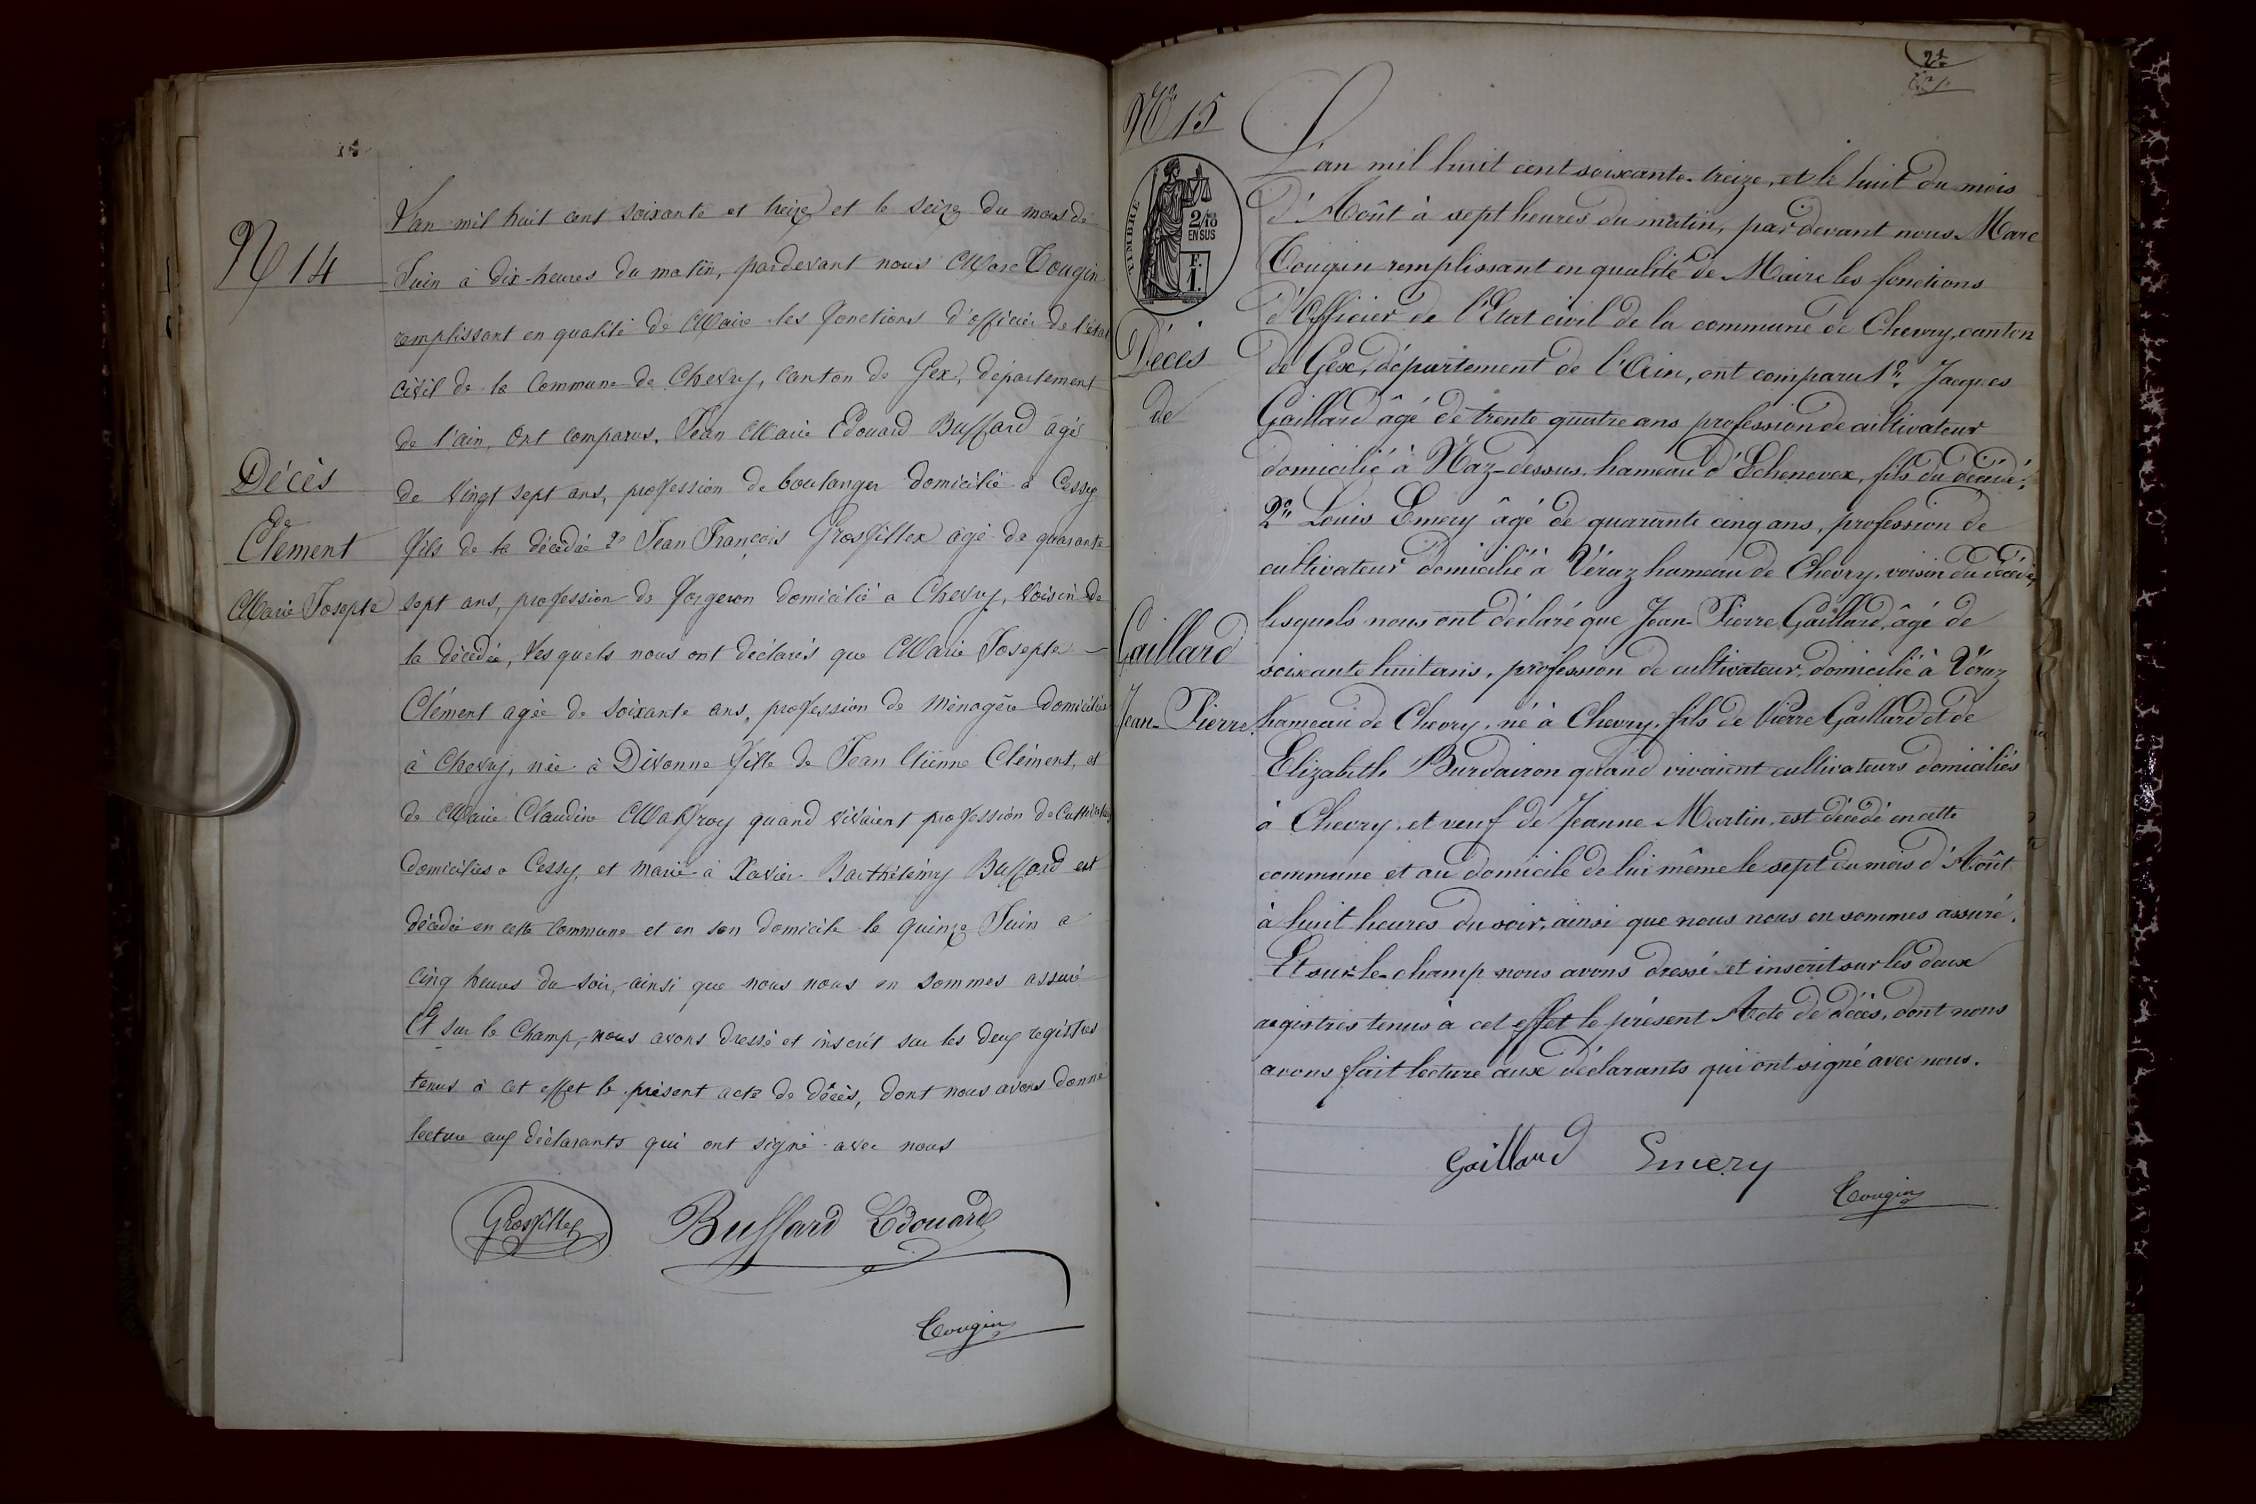 14
N 14
Décès
Clément
Marie Josepte
L'an mil huit cent soixante et treize et le seize du mois de
Juin à dix-heures du matin, pardevant nous Marc Tougin
remplissant en qualité de Maire les fonctions d'officier de l'état
civil de la Commune de Chevry, canton de Gex, département
de l'ain, Ont comparus, Jean Marie Edouard Buffard agé
de vingt sept ans, profession de boulanger domicilié à Cessy
fils de la décédée 2º Jean François Grosfillex agé de quarante
sept ans, profession de forgeron domicilié a Chevry, voisin de
la décédée, lesquels nous ont déclarés que Marie Josepte
Clément agée de soixante ans, profession de ménagère domiciliée
à Chevry, née à Divonne fille de Jean Etienne Clément, et
de Marie Claudine Maffroy quand vivaient profession de Cultivateurs
domiciliés a Cessy, et marié à Xavier Barthélémy Buffard est
décédée en cette commune et en son domicile le quinze Juin a
cinq heures du soir, ainsi que nous nous en sommes assuré
Et sur le champ, nous avons dressé et inscrit sur les deux registres
tenus à cet effet le présent acte de décès, dont nous avons donné
lecture aux déclarants qui ont signé avec nous
Grosfillex Buffard Edouard
Tougin
Nº 15
TIMBRE
2/10
EN SUS
F.
1.
Décès
de
Gaillard
Jean-Pierre.
L'an mil huit cent soixante-treize, et le huit du mois
d'Août à sept heures du matin, pardevant nous Marc
Tougin remplissant en qualité de Maire les fonctions
d'Officier de l'Etat civil de la commune de Chevry, canton
de Gex, département de l'Ain, ont comparu 1º. Jacques
Gaillard âgé de trente quatre ans profession de cultivateur
domicilié à Naz-dessus, hameau d'Echenevex, fils du décédé;
2º Louis Emery âgé de quarante cinq ans, profession de
cultivateur domicilié à Véraz hameau de Chevry, voisin du décédé,
lesquels nous ont déclaré que Jean-Pierre Gaillard, âgé de
soixante huit ans, profession de cultivateur, domicilié à Véraz
hameau de Chevry, né à Chevry, fils de Pierre Gaillard et de
Elizabeth Burdairon quand vivaient cultivateurs domiciliés
à Chevry, et veuf de Jeanne Martin, est décédé en cette
commune et au domicile de lui même le sept du mois d'Août
à huit heures du soir, ainsi que nous nous en sommes assuré.
Et sur-le-champ nous avons dressé et inscrit sur les deux
registres tenus à cet effet le présent Acte de décès, dont nous
avons fait lecture aux déclarants qui ont signé avec nous.
Gaillard Emery
Tougin